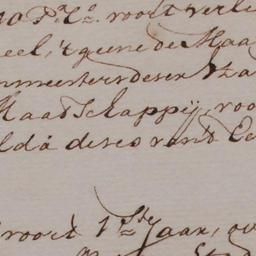 10 P.r C.o voort verli
eel, 't geene de Maa
nmeesters deser Sta
Maatschappij, voo
ld à deses rand Ee
voort 1.ste Jaar, ov